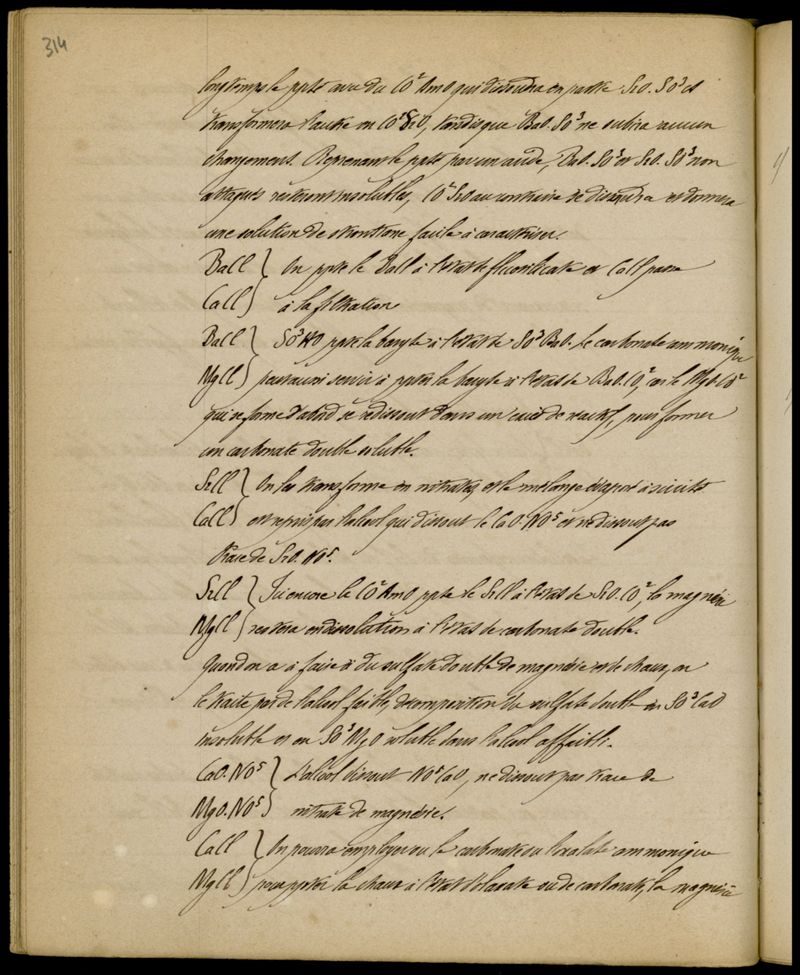 314
longtemps le ppté avec du CO² AmO qui dissoudra en partie SrO. SO³ et
transformera l'autre en CO² SrO, tandis que BaO. SO³ ne subira aucun
changement. Reprenant le ppté par un acide, BaO. SO³ et SrO. SO³ non
attaqués resteront insolubles, CO² SrO au contraire se dissoudra et donnera
une solution de strontiane facile à caractériser.
BaCl } On ppte le BaCl à l'état de fluosilicate et CaCl passe
CaCl } à la filtration
BaCl } SO³ HO ppte la baryte à l'état de SO³ BaO. Le carbonate ammonique
MgCl } pourra aussi servir à ppter la baryte à l'état de BaO. CO², car le MgO. CO²
qui se forme d'abord se redissout dans un excès de réactif, pour former
un carbonate double soluble.
SrCl } On les transforme en nitrates, et le mélange évaporé à siccité
CaCl } est repris par l'alcool qui dissout le CaO. NO⁵ et ne dissout pas
trace de SrO. NO⁵.
SrCl } Ici encore le CO² AmO ppte le SrCl à l'état de SrO. CO², la magnésie
MgCl } restera en dissolution à l'état de carbonate double.
Quand on a à faire à du sulfate double de magnésie et de chaux, on
le traite par de l'alcool faible, décomposition du sulfate double en SO³ CaO
insoluble et en SO³ MgO soluble dans l'alcool affaibli.
CaO. NO⁵ } L'alcool dissout NO⁵ CaO, ne dissout pas trace de
MgO. NO⁵ } nitrate de magnésie.
CaCl } On pourra employer ou le carbonate ou l'oxalate ammonique
MgCl } pour ppter la chaux à l'état d'oxalate ou de carbonate, la magnésie